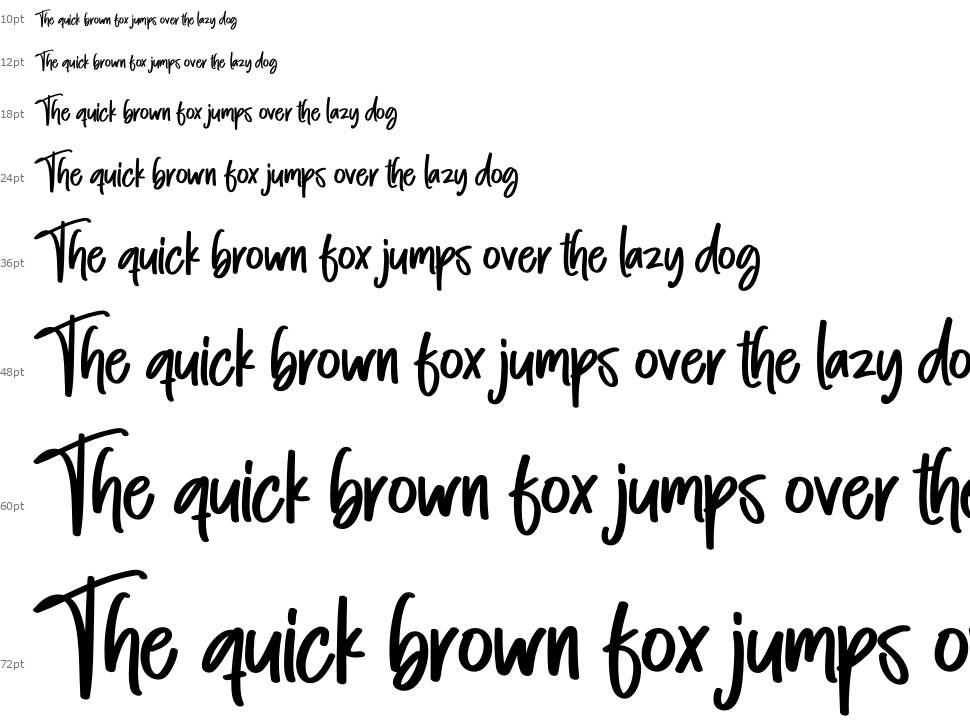 10pt The quick brown fox jumps over the lazy dog
12pt The quick brown fox jumps over the lazy dog
18pt The quick brown fox jumps over the lazy dog
24pt The quick brown fox jumps over the lazy dog
36pt The quick brown fox jumps over the lazy dog
48pt The quick brown fox jumps over the lazy do
60pt The quick brown fox jumps over the
72pt The quick brown fox jumps o